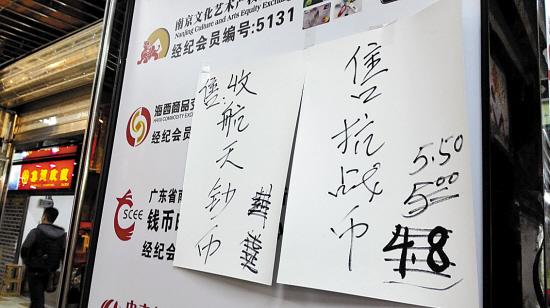 南京文化艺术产权
Nanjing Culture and Arts Equity Exchange
经纪会员编号:5131
海西商品交
HAIXI COMMODITY EXC
经纪会员
广东省南
SCEE
钱币邮
经纪会员
收航天钞币
售:
售抗战币
5.50
5.00
4.8
收藏